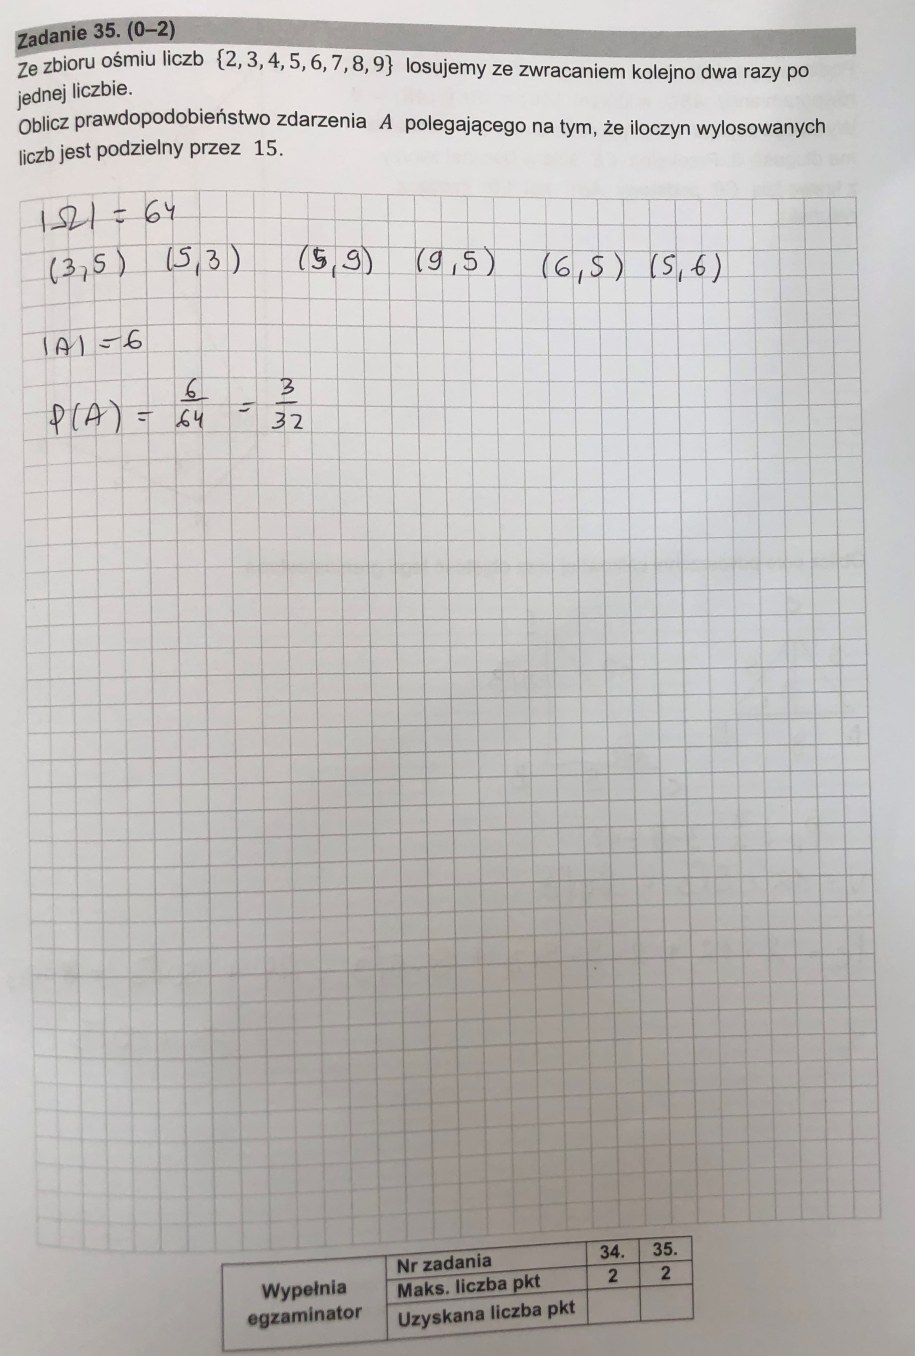 Zadanie 35. (0–2)
Ze zbioru ośmiu liczb {2, 3, 4, 5, 6, 7, 8, 9} losujemy ze zwracaniem kolejno dwa razy po
jednej liczbie.
Oblicz prawdopodobieństwo zdarzenia A polegającego na tym, że iloczyn wylosowanych
liczb jest podzielny przez 15.
|Ω| = 64
(3,5) (5,3) (5,9) (9,5) (6,5) (5,6)
|A| = 6
P(A) = 6/64 = 3/32
Wypełnia egzaminator
Nr zadania 34. 35.
Maks. liczba pkt 2 2
Uzyskana liczba pkt